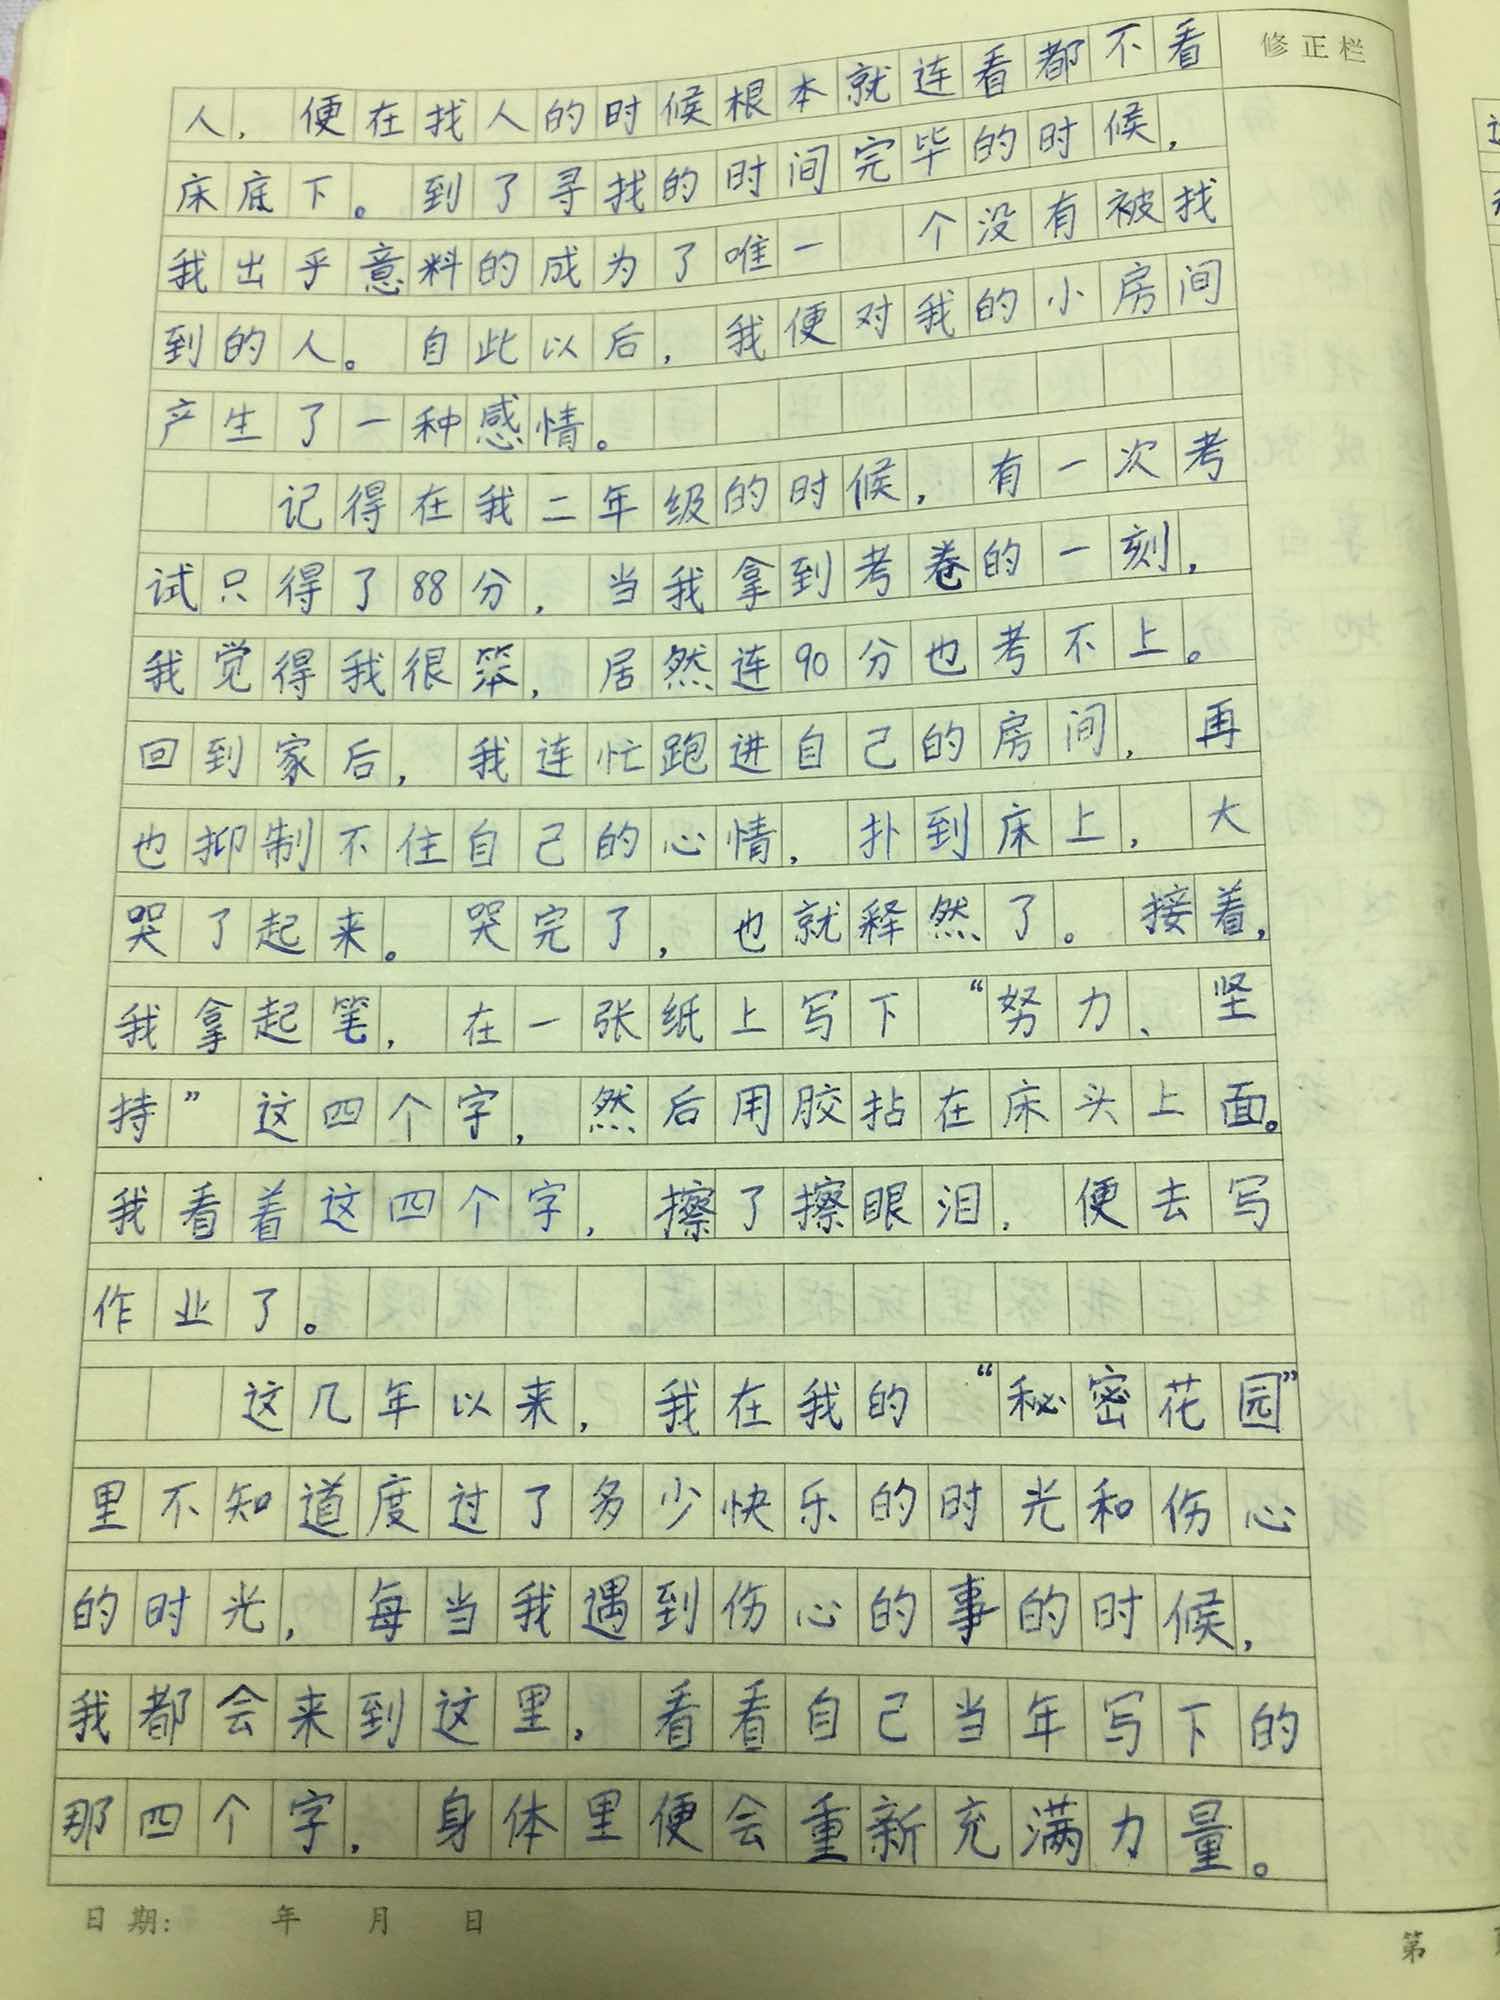 修正栏
人，便在找人的时候根本就连看都不看
床底下。到了寻找的时间完毕的时候，
我出乎意料的成为了唯一个没有被找
到的人。自此以后，我便对我的小房间
产生了一种感情。
记得在我二年级的时候，有一次考
试只得了88分，当我拿到考卷的一刻，
我觉得我很笨，居然连90分也考不上。
回到家后，我连忙跑进自己的房间，再
也抑制不住自己的心情，扑到床上，大
哭了起来。哭完了，也就释然了。接着，
我拿起笔，在一张纸上写下“努力、坚
持”这四个字，然后用胶拈在床头上面。
我看着这四个字，擦了擦眼泪，便去写
作业了。
这几年以来，我在我的“秘密花园”
里不知道度过了多少快乐的时光和伤心
的时光，每当我遇到伤心的事的时候，
我都会来到这里，看看自己当年写下的
那四个字，身体里便会重新充满力量。
日期： 年 月 日
第